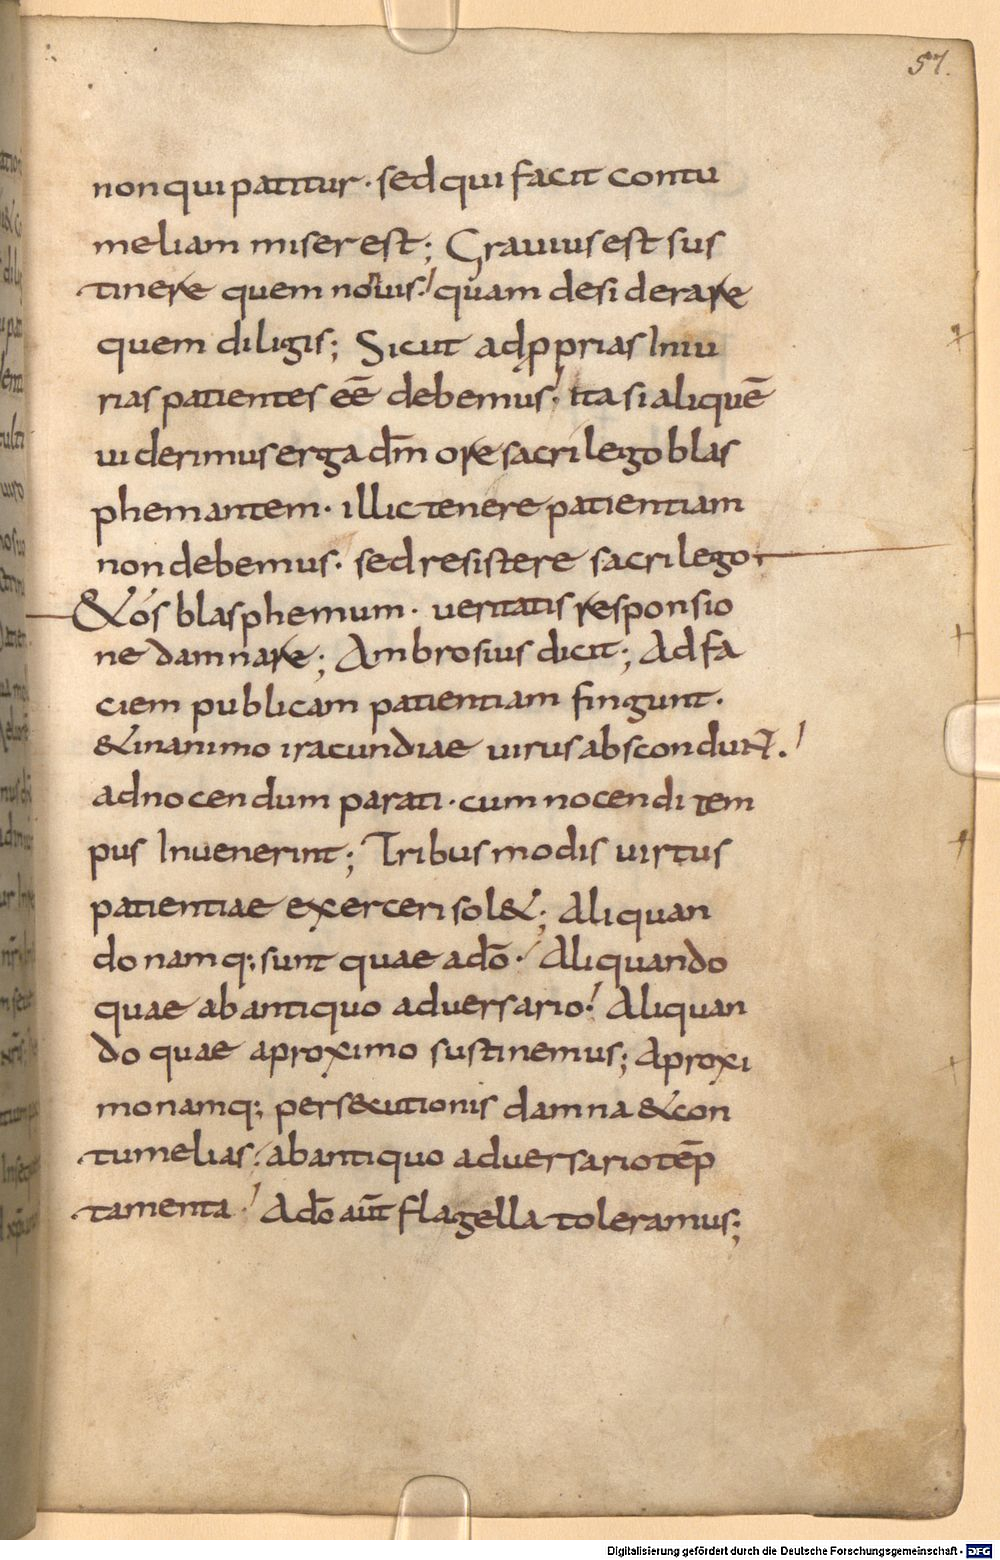 57.
non qui patitur · sed qui facit contu
meliam miser est ; Grauius est sus
tinere quem noluis ·/ quam desi derare
quem diligis ; Sicut ad p prias Iniu
rias patientes eē debemus ·/ ita si aliquē
uiderimus erga dm̄ ore sacrilego blas
phemantem · illic tenere patientiam
non debemus · sed resistere sacrilego ·
& os blasphemum · ueritatis responsio
ne damnare ; Ambrosius dicit ; Ad fa
ciem publicam patientiam fingunt ·
& in animo iracundiae uirus abscondunt ·/
ad nocendum parati · cum nocendi tem
pus Inuenerint ; Tribus modis uirtus
patientiae exerceri sol& ; Aliquan
do namq; sunt quae a dō ·/ Aliquando
quae ab antiquo aduersario ·/ Aliquan
do quae a proximo sustinemus ; A proxi
mo namq; persecutionis damna & con
tumelias ·/ ab antiquo aduersario tēp
tamenta ·/ A dō aūt flagella toleramus ;
Digitalisierung gefördert durch die Deutsche Forschungsgemeinschaft - DFG